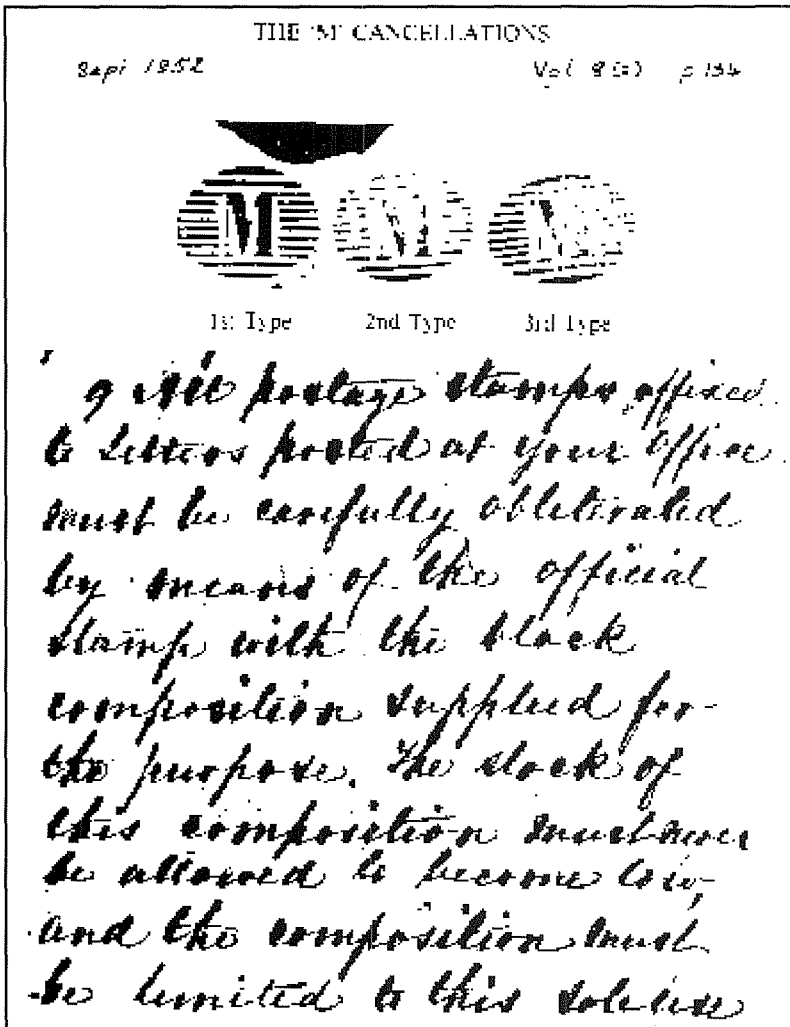 THE 'M' CANCELLATIONS
Sept 1952 Vol 8 p 134
M M
1st Type 2nd Type 3rd Type
9 All postage stamps affixed
to Letters posted at your Office
must be carefully obliterated
by means of the official
stamp with the black
composition supplied for
the purpose. The stock of
this composition must never
be allowed to become low,
and the composition must
be limited to this sole use